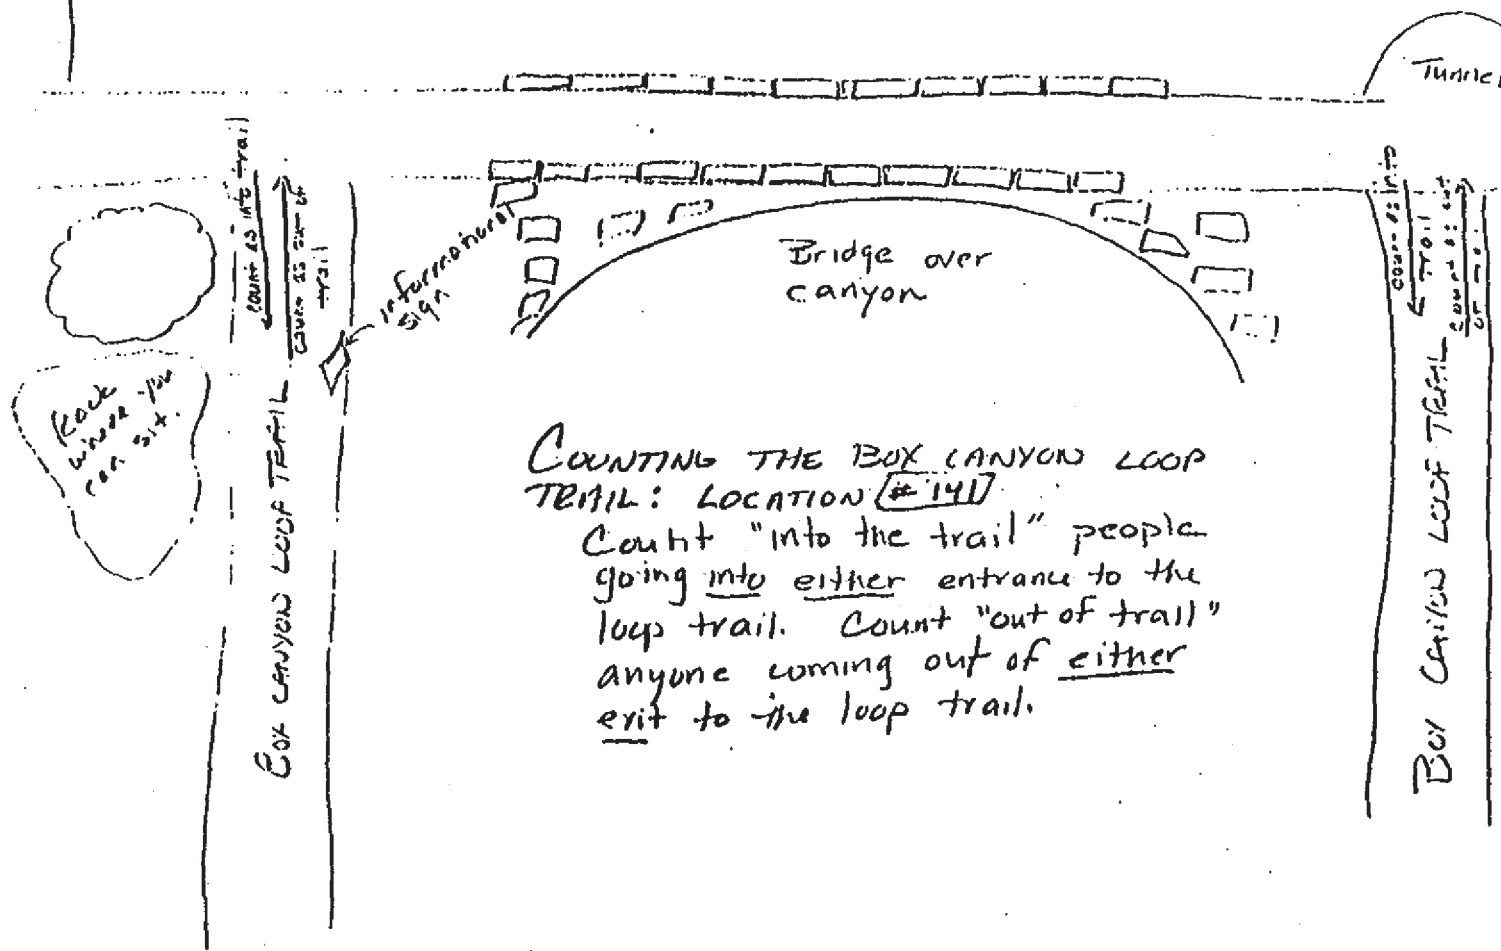 Tunnel
count as into trail
count as out of
trail
informational
sign
Bridge over
canyon
count as into
trail
count as out
of
Rock
where you
can sit.
BOX CANYON LOOP TRAIL
BOX CANYON LOOP TRAIL
COUNTING THE BOX CANYON LOOP
TRAIL: LOCATION #141
Count "into the trail" people
going into either entrance to the
loop trail. Count "out of trail"
anyone coming out of either
exit to the loop trail.